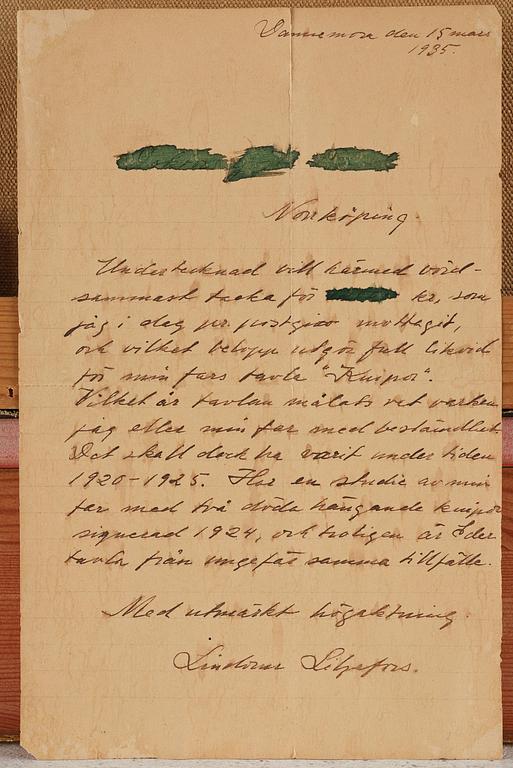 Dannemora den 15 mars
1935.
Norrköping.
Undertecknad vill härmed vörd-
sammast tacka för kr, som
jag i dag pr. postgiro mottagit,
och vilket belopp utgör full likvid
för min fars tavla "Knipor".
Vilket år tavlan målats vet varken
jag eller min far med bestämdhet.
Det skall dock ha varit under tiden
1920-1925. Har en studie av min
far med två döda hängande knipor
signerad 1924, och troligen är Eder
tavla från ungefär samma tillfälle.
Med utmärkt högaktning.
Lindorm Liljefors.